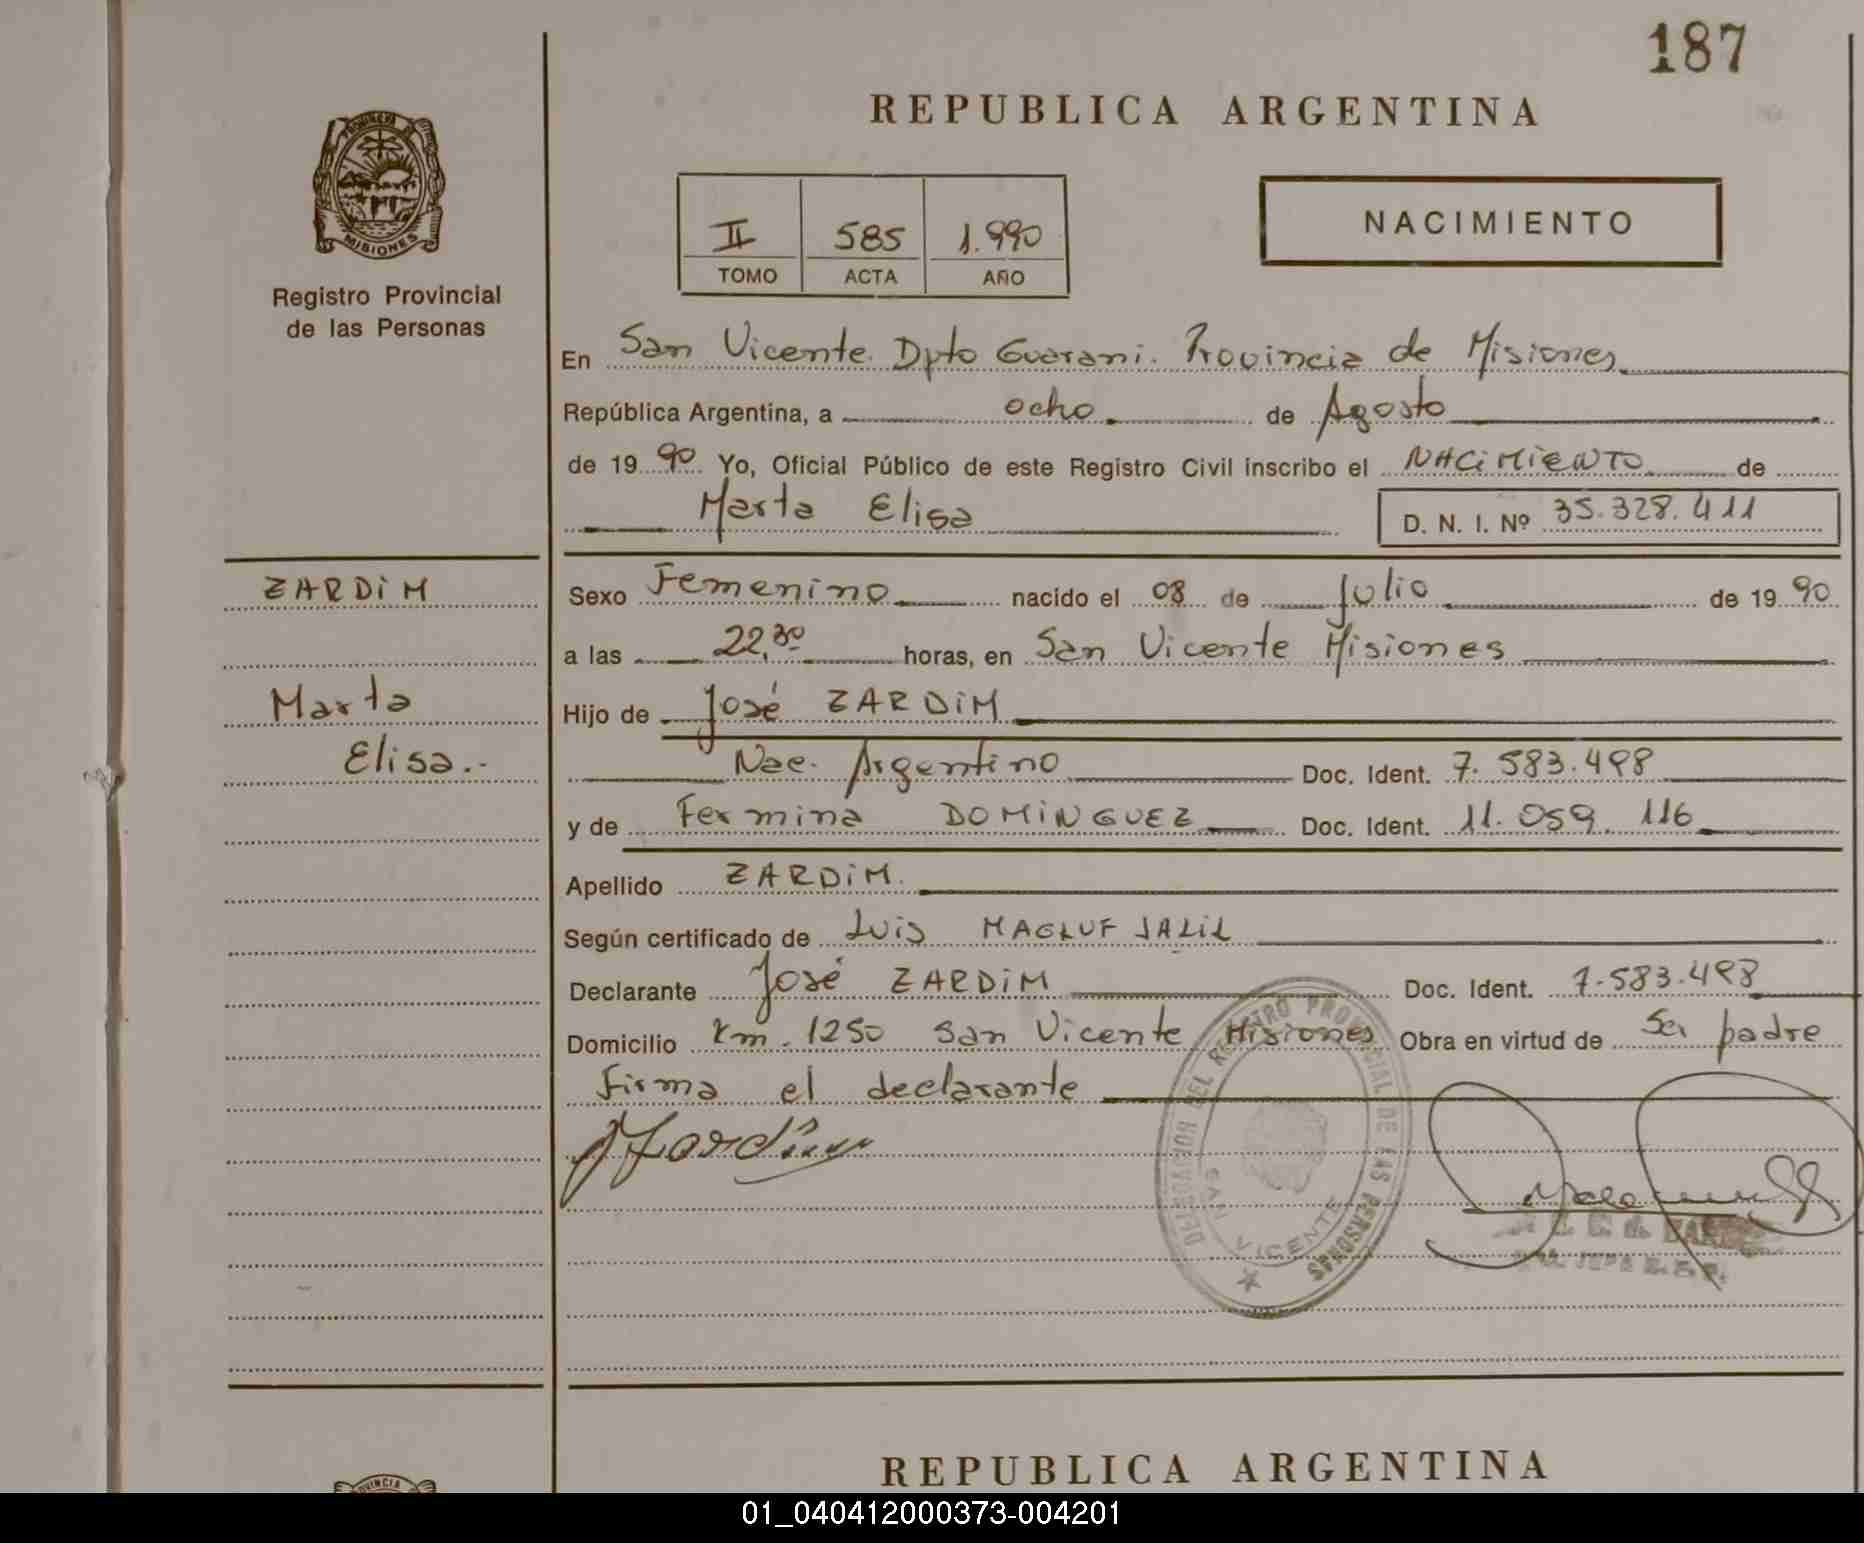 187
REPUBLICA ARGENTINA
PROVINCIA DE
MISIONES
Registro Provincial
de las Personas
II 585 1.990
TOMO ACTA AÑO
NACIMIENTO
En San Vicente. Dpto Guarani. Provincia de Misiones
República Argentina, a ocho de Agosto
de 19 90 Yo, Oficial Público de este Registro Civil inscribo el NACIMIENTO de
Marta Elisa D. N. I. Nº 35.328.411
ZARDIM
Marta
Elisa.-
Sexo Femenino nacido el 08 de Julio de 19 90
a las 22,30 horas, en San Vicente Misiones
Hijo de José ZARDIM
Nac. Argentino Doc. Ident. 7.583.498
y de Fermina DOMINGUEZ Doc. Ident. 11.059.116
Apellido ZARDIM.
Según certificado de Luis MAGLUF JALIL
Declarante José ZARDIM Doc. Ident. 7.583.498
Domicilio Km. 1250 San Vicente Misiones Obra en virtud de Ser padre
Firma el declarante
DEL REGISTRO PROVINCIAL DE LAS PERSONAS
SAN VICENTE
REPUBLICA ARGENTINA
01_040412000373-004201